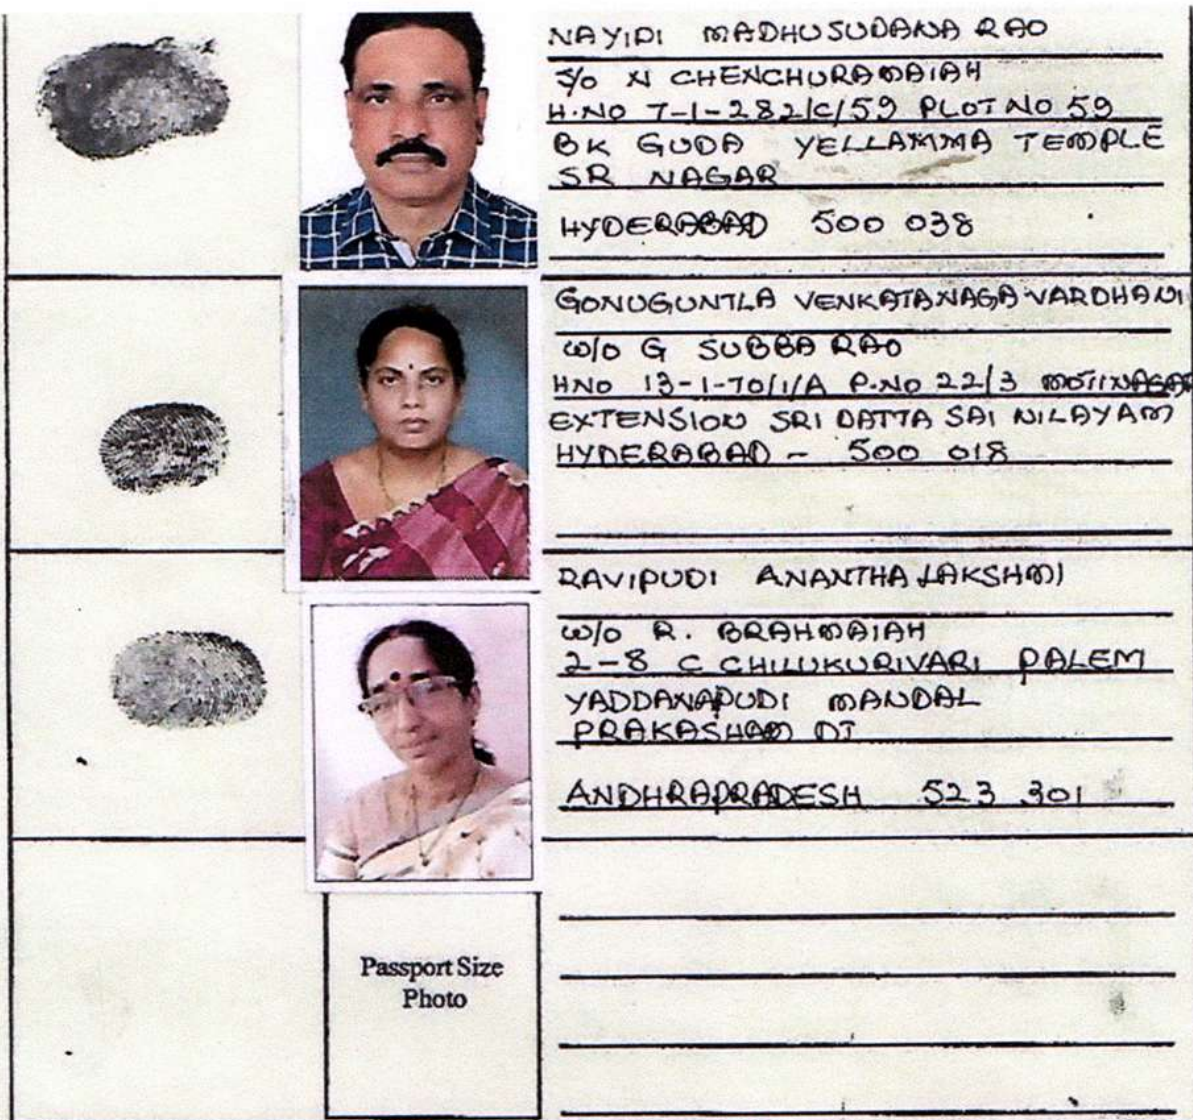 NAYIDI MADHUSUDANA RAO
S/o N CHENCHURAMAIAH
H.NO 7-1-282/C/59 PLOT NO 59
BK GUDA YELLAMMA TEMPLE
SR NAGAR
HYDERABAD 500 038
GONUGUNTLA VENKATANAGA VARDHANI
W/o G SUBBA RAO
HNO 13-1-70/1/A P.NO 22/3 MOTINAGAR
EXTENSION SRI DATTA SAI NILAYAM
HYDERABAD - 500 018
RAVIPUDI ANANTHA LAKSHMI
W/o R. BRAHMAIAH
2-8 C CHILUKURIVARI PALEM
YADDANAPUDI MANDAL
PRAKASHAM DT
ANDHRAPRADESH 523 301
Passport Size
Photo